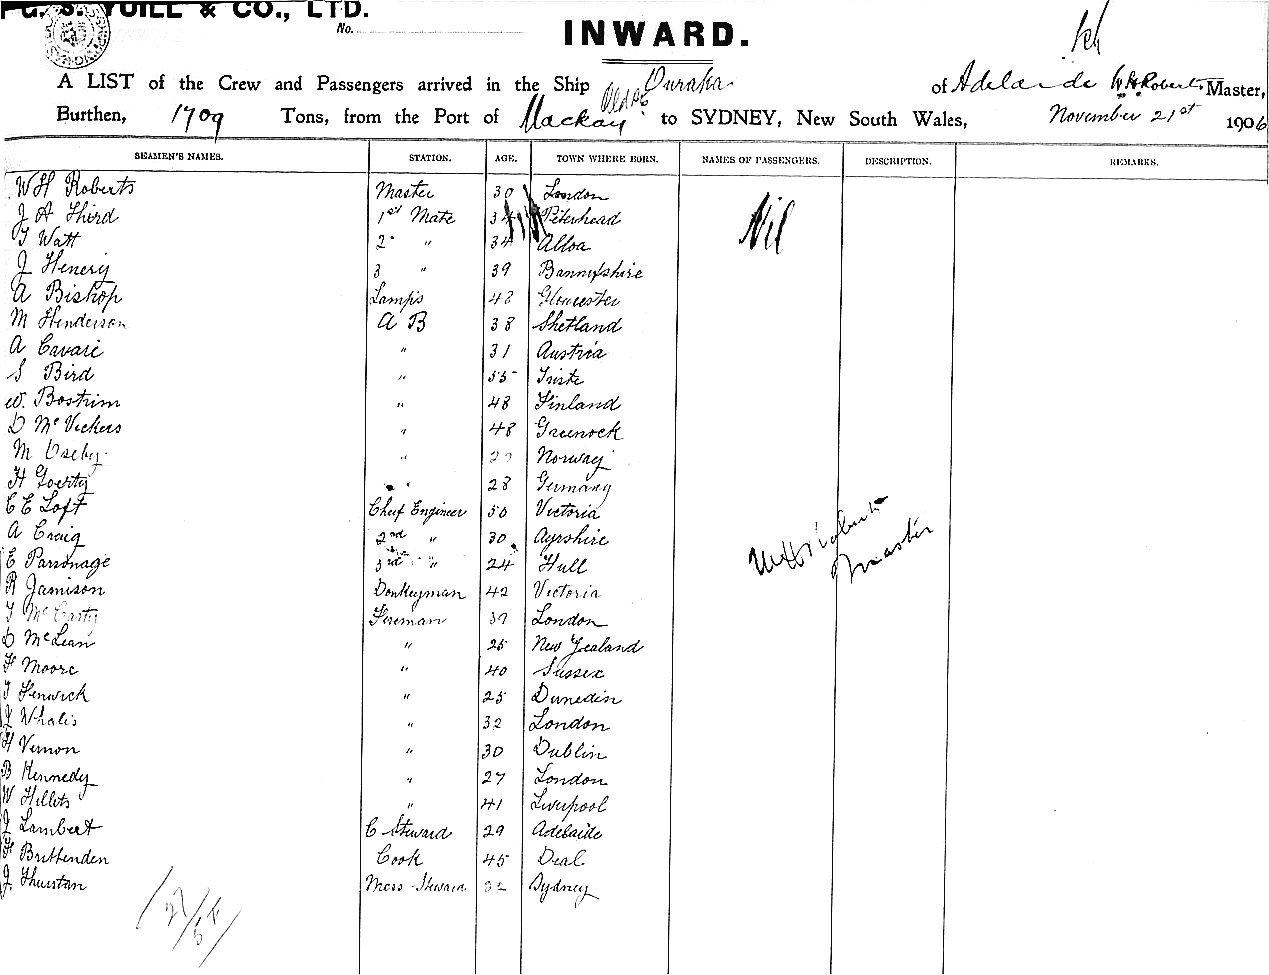 G. S. YUILL & CO., LTD.
No.
INWARD.
A LIST of the Crew and Passengers arrived in the Ship Ouraka of Adelaide W H Roberts Master,
Burthen, 1709 Tons, from the Port of Mackay to SYDNEY, New South Wales, November 21st 1906
SEAMEN'S NAMES. STATION. AGE. TOWN WHERE BORN. NAMES OF PASSENGERS. DESCRIPTION. REMARKS.
W H Roberts Master 30 London
J A Third 1st Mate 34 Peterhead Nil
T Watt 2 " " 34 Alloa
J Henery 3 " 39 Bannffshire
A Bishop Lamps 48 Gloucester
M Henderson A B 38 Shetland
A Cavari " 31 Austria
S Bird " 55 Trieste
W. Bostrim " 48 Finland
D McVickers " 48 Greenock
M " Norway
H Goerty " 28 Germany
C E Loft Chief Engineer 50 Victoria
A Craig 2nd " 30 Ayrshire
E Parsonage 3rd " 24 Hull
W H Roberts
Master
R Jamison Donkeyman 42 Victoria
T McCarty Fireman 39 London
D McLean " 25 New Zealand
F Moore " 40 Sussex
T Fenwick " 25 Dunedin
J Whalis " 32 London
H Vernon " 30 Dublin
B Kennedy " 27 London
W Hillets " 41 Liverpool
J Lambert C Steward 29 Adelaide
F Bruttenden Cook 45 Deal
J. Thurstan Mess Steward 32 Sydney
27